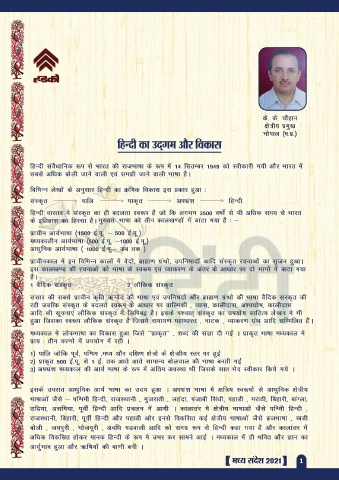 हडको
के. के. चौहान
क्षेत्रीय प्रमुख
भोपाल (म.प्र.)
हिन्दी का उद्गम और विकास
हिन्दी संवैधानिक रूप से भारत की राजभाषा के रूप में 14 सितम्बर 1949 को स्वीकारी गयी और भारत में
सबसे अधिक बोली जाने वाली एवं समझी जाने वाली भाषा है।
विभिन्न लेखों के अनुसार हिन्दी का क्रमिक विकास इस प्रकार हुआ :
संस्कृत पालि प्राकृत अपभ्रंश हिन्दी
हिन्दी वास्तव में संस्कृत का ही बदलता स्वरूप है जो कि लगभग 3500 वर्षों से भी अधिक समय से भारत
के इतिहास का हिस्सा है। मुख्यतः भाषा को तीन कालखण्डों में बांटा गया है : –
प्राचीन आर्यभाषा (1500 ई.पू. – 500 ई.पू.)
मध्यकालीन आर्यभाषा (500 ई.पू. –1000 ई.पू.)
आधुनिक आर्यभाषा ( 1000 ई.पू.– अब तक )
प्राचीनकाल में इन विभिन्न कालों में वेदों, ब्राह्मण ग्रंथों, उपनिषदों आदि संस्कृत रचनाओं का सृजन हुआ।
इस कालखण्ड की रचनाओं को भाषा के स्वरूप एवं व्याकरण के अंतर के आधार पर दो भागों में बाटा गया
है।
1 वैदिक संस्कृत 2 लौकिक संस्कृत
संसार की सबसे प्राचीन कृति ऋग्वेद की भाषा एवं उपनिषदों और ब्राह्मण ग्रंथों की भाषा वैदिक संस्कृत की
रही जबकि संस्कृत के बदलते स्वरूप के आधार पर वाल्मिकी , व्यास, कालीदास, अश्वघोष, कालीदास
आदि की रचनाएं लौकिक संस्कृत में लिपिबद्ध है। इसके पश्चात् संस्कृत का उपयोग साहित्य लेखन में भी
हुआ जिसका स्वरूप लौकिक संस्कृत है जिसमें रामायण महाभारत , नाटक , व्याकरण ग्रंथ आदि सम्मिलित हैं।
मध्यकाल में लोकभाषा का विकास हुआ जिसे "प्राकृत" , शब्द की संज्ञा दी गई । प्राकृत भाषा मध्यकाल में
प्रायः तीन चरणों में उपयोग में रही ।
1) पालि जोकि पूर्व, पश्चिम ,मध्य और दक्षिण क्षेत्रों के क्षेत्रीय स्तर पर हुई
2) प्राकृत 500 ई.पू. से 1 ई. तक आते आते सामान्य बोलचाल की भाषा बनती गई
3) अपभ्रंश मध्यकाल की आर्य भाषा के रूप में अंतिम अवस्था थी जिसके सात भेद स्वीकार किये गये ।
इसके उपरांत आधुनिक आर्य भाषा का उदय हुआ । अपभ्रंश भाषा में क्षत्रिय स्वरूपों से आधुनिक क्षेत्रीय
भाषाओं जैसे – पश्चिमी हिन्दी, राजस्थानी , गुजराती , लहंदा, पंजाबी सिंधी, पहाडी , मराठी, बिहारी, बांग्ला,
उडिया, असमिया, पूर्वी हिन्दी आदि प्रचलन में आयी । कालांतर में क्षेत्रीय भाषाओं जैसे पश्मिी हिन्दी ,
राजस्थानी, बिहारी, पूर्वी हिन्दी और पहाडी और इनसे विकसित कई क्षेत्रीय भाषाओं जैसे ब्रजभाषा , खडी
बोली , जयपुरी , भोजपुरी , अवधि गढवाली आदि को समग्र रूप से हिन्दी कहा गया है और कालांतर में
अधिक विकसित होकर मानक हिन्दी के रूप में उभर कर सामने आई । मध्यकाल में ही भक्ति और ज्ञान का
आर्दुभाव हुआ और ऋषियों की वाणी बनी ।
मध्य संदेश 2021 1